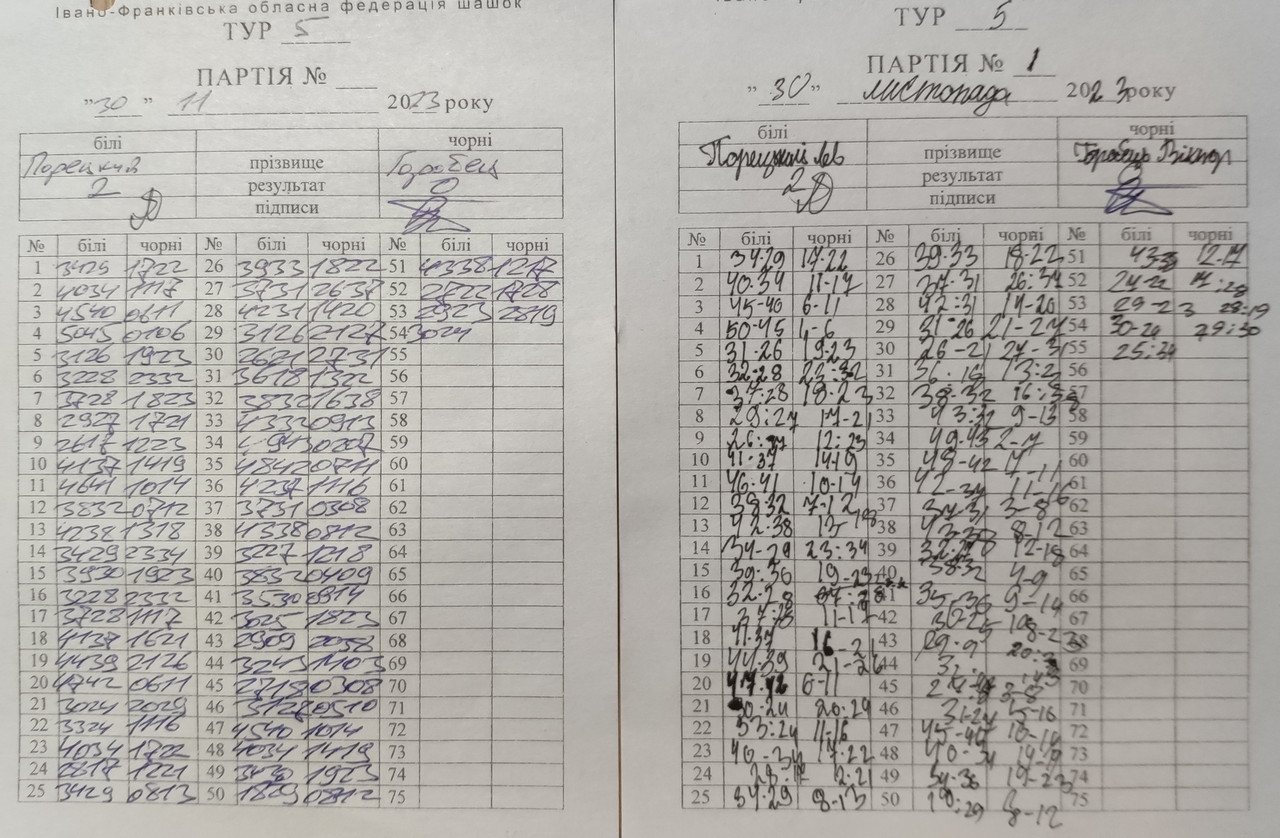 Івано-Франківська обласна федерація шашок
ТУР 5
ПАРТІЯ №
"30" 11 2023 року
білі чорні
Порецкий прізвище Горобец
2 результат 0
підписи
№ білі чорні № білі чорні № білі чорні
1 3429 1722 26 3933 1822 51 4338 1217
2 4034 1117 27 3731 2637 52 2722 1728
3 4540 0611 28 4231 1420 53 2923 2819
4 5045 0106 29 3126 2127 54 3024
5 3126 1923 30 2621 2731 55
6 3228 2332 31 3618 1322 56
7 3728 1823 32 3832 1638 57
8 2927 1721 33 4332 0913 58
9 2617 1223 34 4943 0207 59
10 4137 1419 35 4842 0711 60
11 4641 1014 36 4237 1116 61
12 3832 0712 37 3731 0308 62
13 4238 1318 38 4338 0812 63
14 3429 2334 39 3227 1218 64
15 3930 1923 40 3832 0409 65
16 3228 2332 41 3530 0914 66
17 3728 1117 42 3025 1823 67
18 4137 1621 43 2909 2038 68
19 4439 2126 44 3243 1403 69
20 4742 0611 45 2718 0308 70
21 3024 2029 46 3127 0510 71
22 3324 1116 47 4540 1014 72
23 4034 1722 48 4034 1419 73
24 2817 1221 49 3430 1923 74
25 3429 0813 50 1829 0812 75
ТУР 5
ПАРТІЯ № 1
"30" листопада 2023 року
білі чорні
Порецький Лев прізвище Горобець Віктор
2 результат 0
підписи
№ білі чорні № білі чорні № білі чорні
1 34-29 17-22 26 39-33 18-22 51 12-17
2 40-34 11-17 27 37-31 26:37 52
3 45-40 6-11 28 42:31 14-20 53 29-23 28:19
4 50-45 1-6 29 31-26 21-27 54 30-24
5 31-26 19-23 30 26-21 27-31 55
6 32-28 23:32 31 56
7 37:28 18-23 32 38-32 57
8 29:27 17-21 33 43:32 9-13 58
9 12:23 34 49-43 2-7 59
10 41-37 14-19 35 48-42 7-11 60
11 46-41 10-14 36 11-16 61
12 38-32 7-12 37 3-8 62
13 42-38 13-18 38 8-12 63
14 34-29 23:34 39 12-18 64
15 19-23 40 38-32 4-9 65
16 41 9-14 66
17 11-17 42 30-25 18-23 67
18 41-37 16-21 43 29:9 68
19 44-39 21-26 44 69
20 47-42 6-11 45 70
21 30-24 20:29 46 71
22 33:24 11-16 47 72
23 40-34 17-22 48 40-34 73
24 49 19-23 74
25 34-29 8-13 50 8-12 75